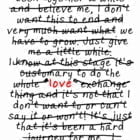 and believe me, I don't
want this to end and
very much want what we
have to grow. will give
me a little while.
I know at this stage it's
customary to do the
whole "love" exchange
thing and it's not that I
don't want to or can't
say it or won't. It's just
that it's been a hard